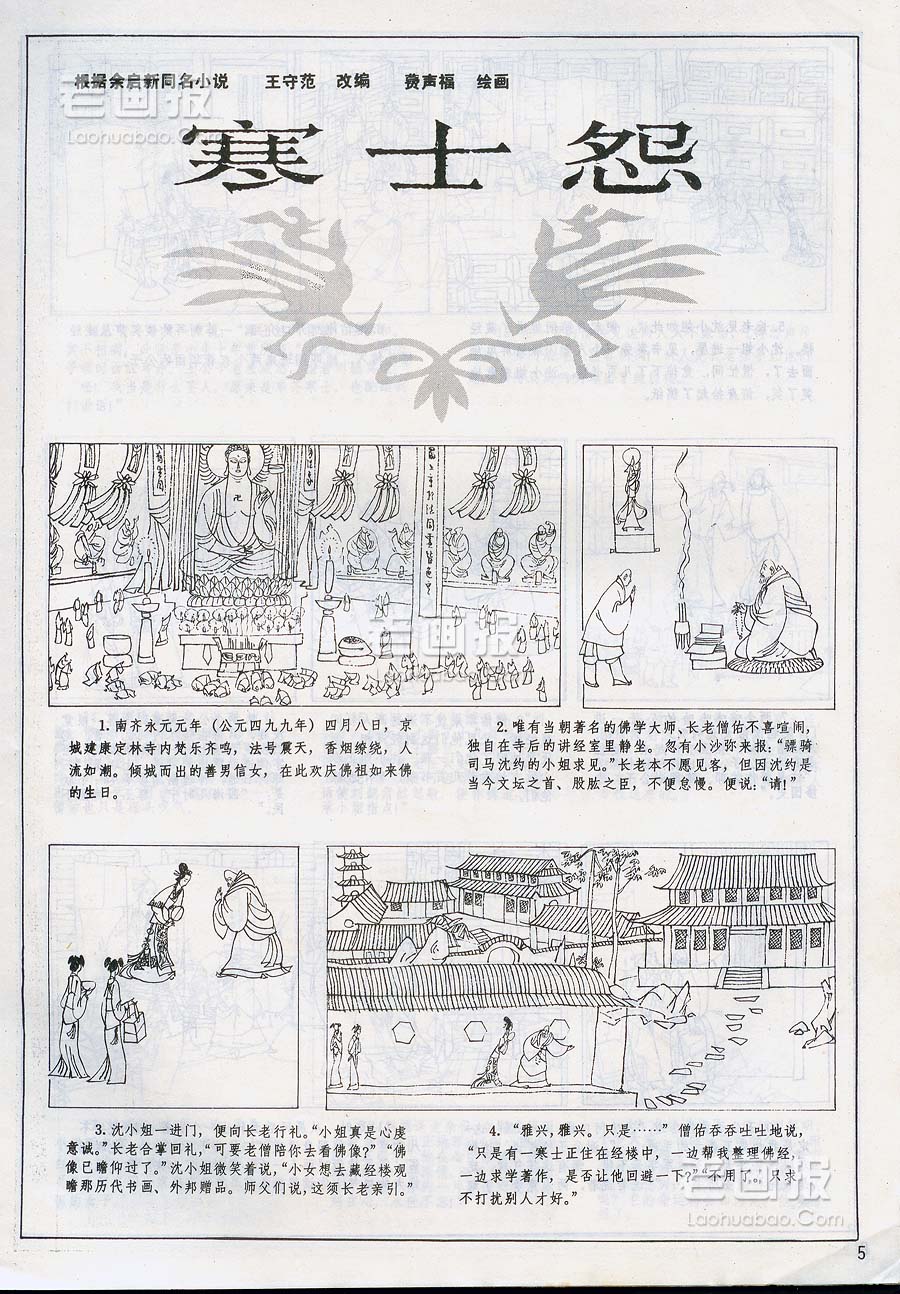 根据余启新同名小说 王守范 改编 费声福 绘画
老画报
Laohuabao.Com
寒士怨
老画报
1.南齐永元元年（公元四九九年）四月八日，京
城建康定林寺内梵乐齐鸣，法号震天，香烟缭绕，人
流如潮。倾城而出的善男信女，在此欢庆佛祖如来佛
的生日。
2.唯有当朝著名的佛学大师、长老僧佑不喜喧闹，
独自在寺后的讲经室里静坐。忽有小沙弥来报：“骠骑
司马沈约的小姐求见。”长老本不愿见客，但因沈约是
当今文坛之首、股肱之臣，不便怠慢。便说：“请！”
3.沈小姐一进门，便向长老行礼。“小姐真是心虔
意诚。”长老合掌回礼，“可要老僧陪你去看佛像？”“佛
像已瞻仰过了。”沈小姐微笑着说，“小女想去藏经楼观
瞻那历代书画、外邦赠品。师父们说，这须长老亲引。”
4.“雅兴，雅兴。只是……”僧佑吞吞吐吐地说，
“只是有一寒士正住在经楼中，一边帮我整理佛经，
一边求学著作，是否让他回避一下？”“不用了。只求
不打扰别人才好。”
老画报
Laohuabao.Com
5